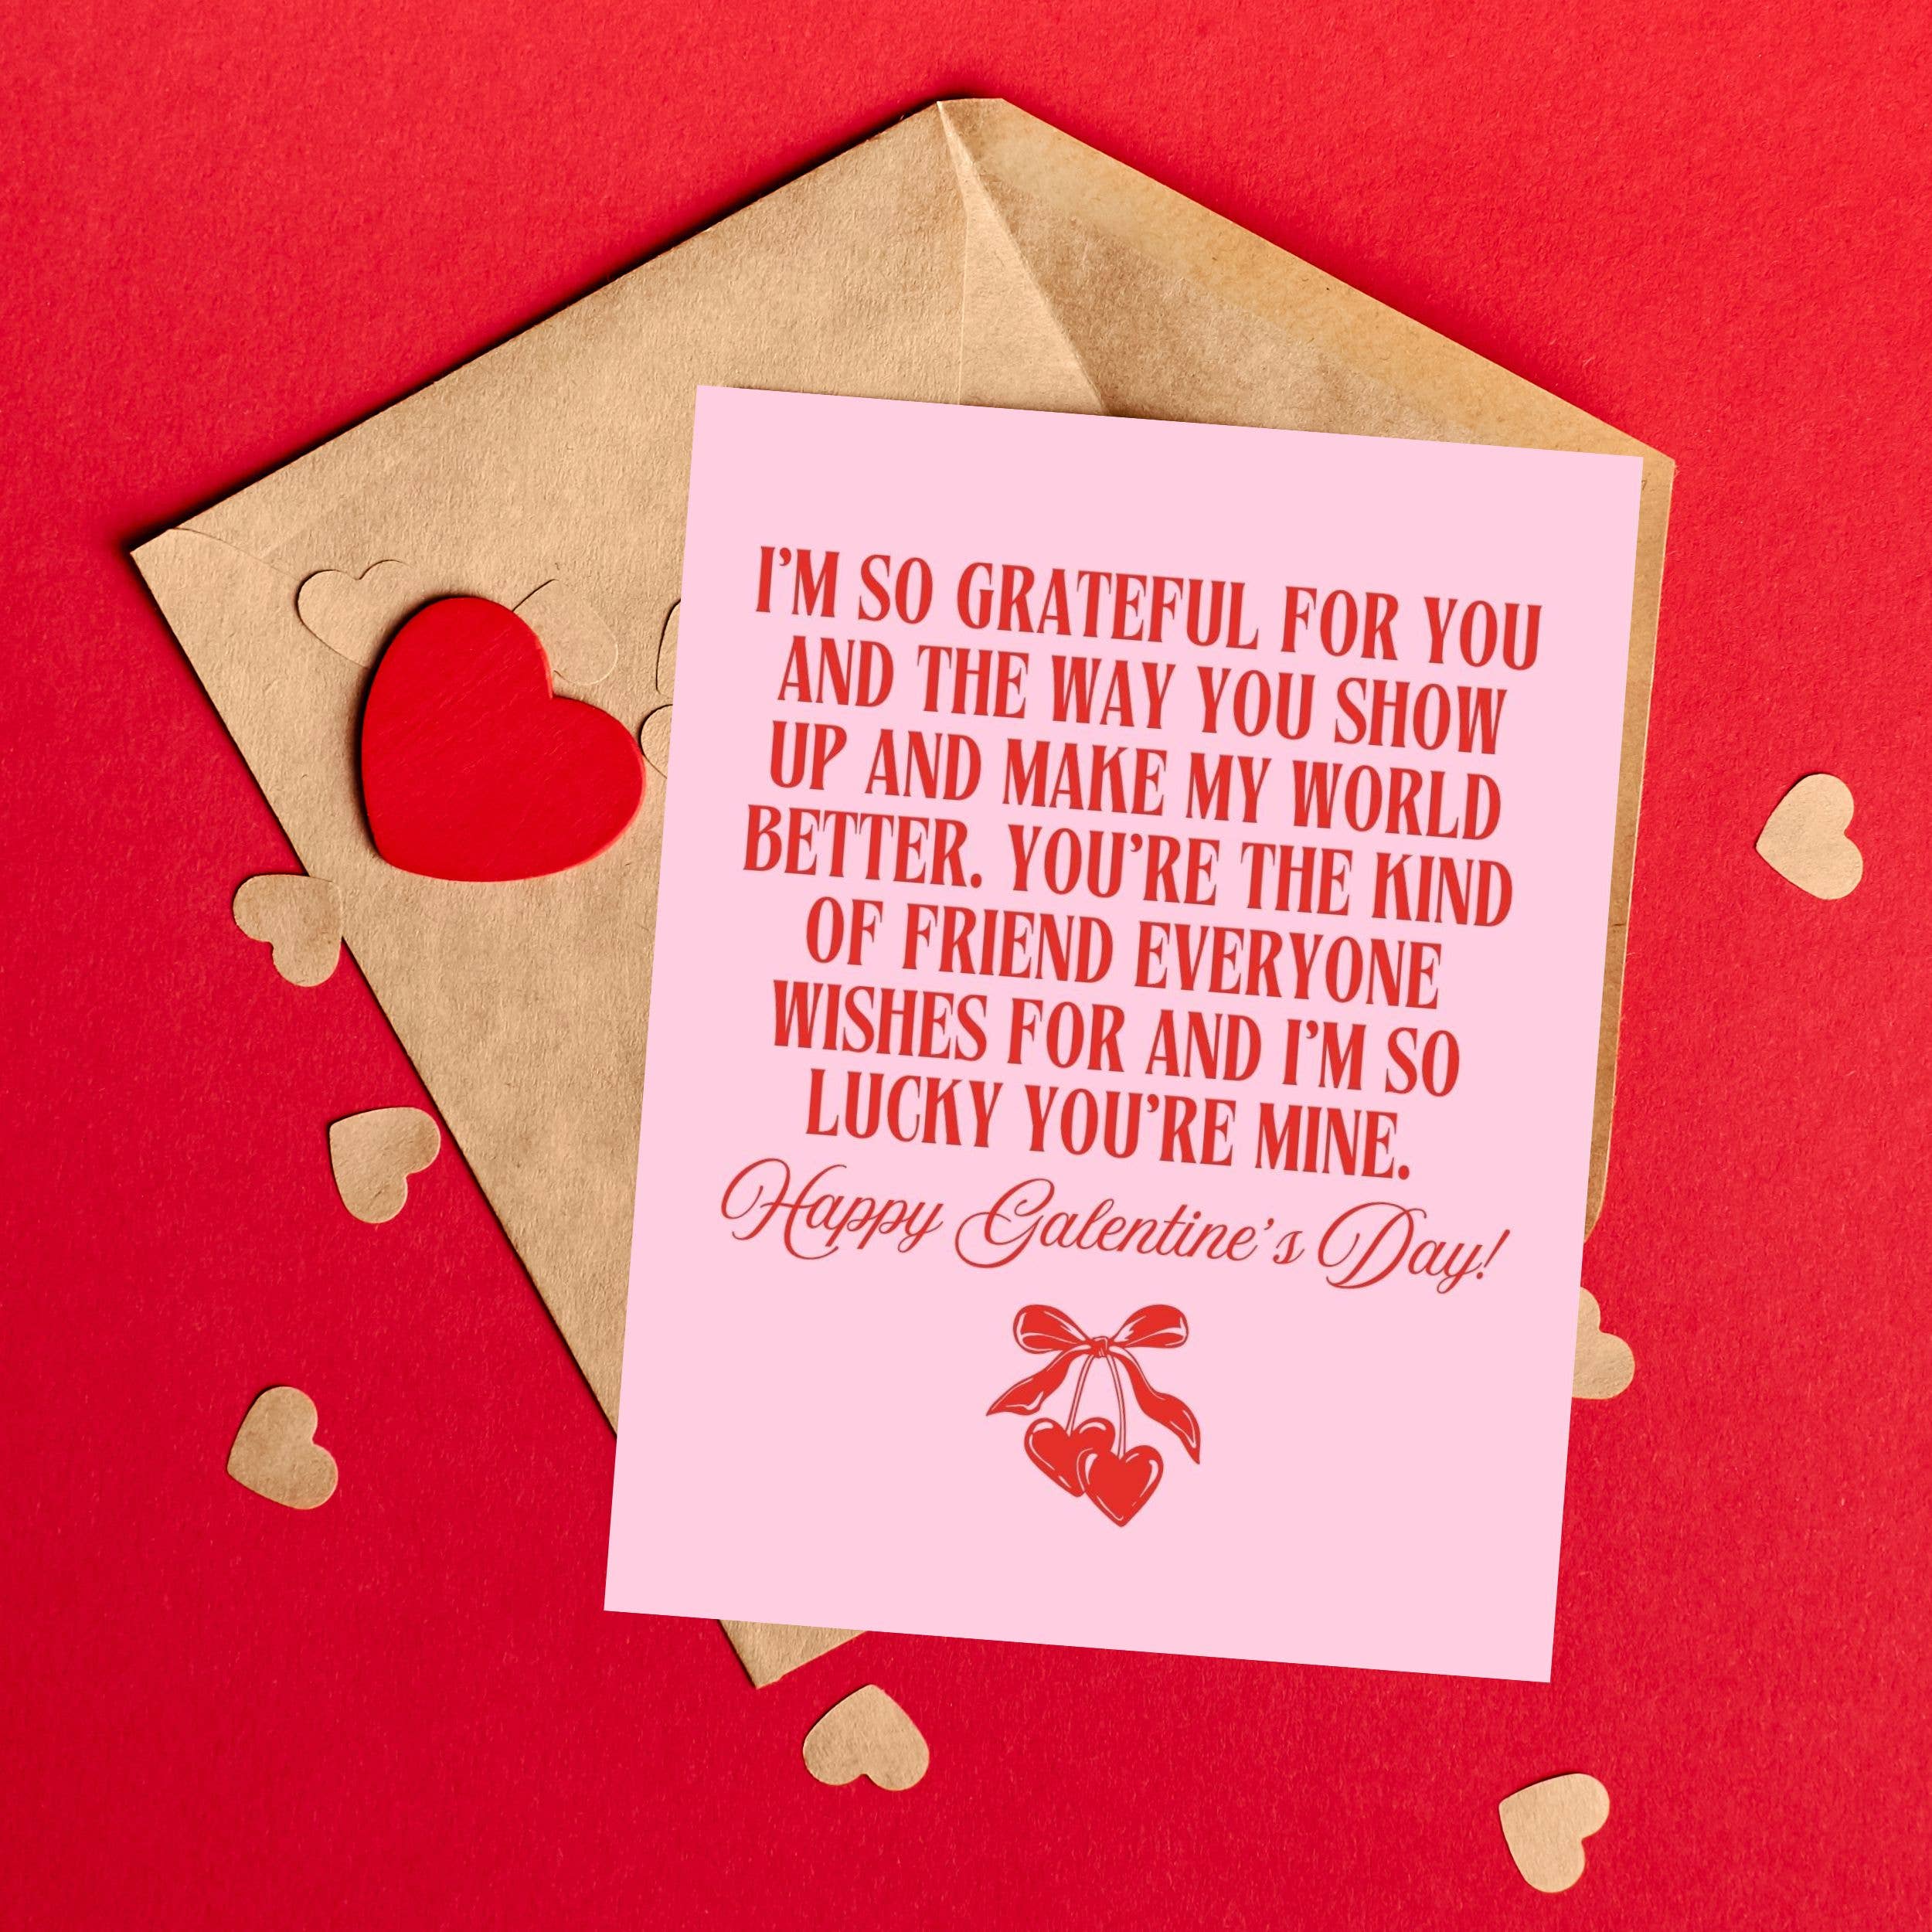 I'M SO GRATEFUL FOR YOU
AND THE WAY YOU SHOW
UP AND MAKE MY WORLD
BETTER. YOU'RE THE KIND
OF FRIEND EVERYONE
WISHES FOR AND I'M SO
LUCKY YOU'RE MINE.
Happy Galentine's Day!